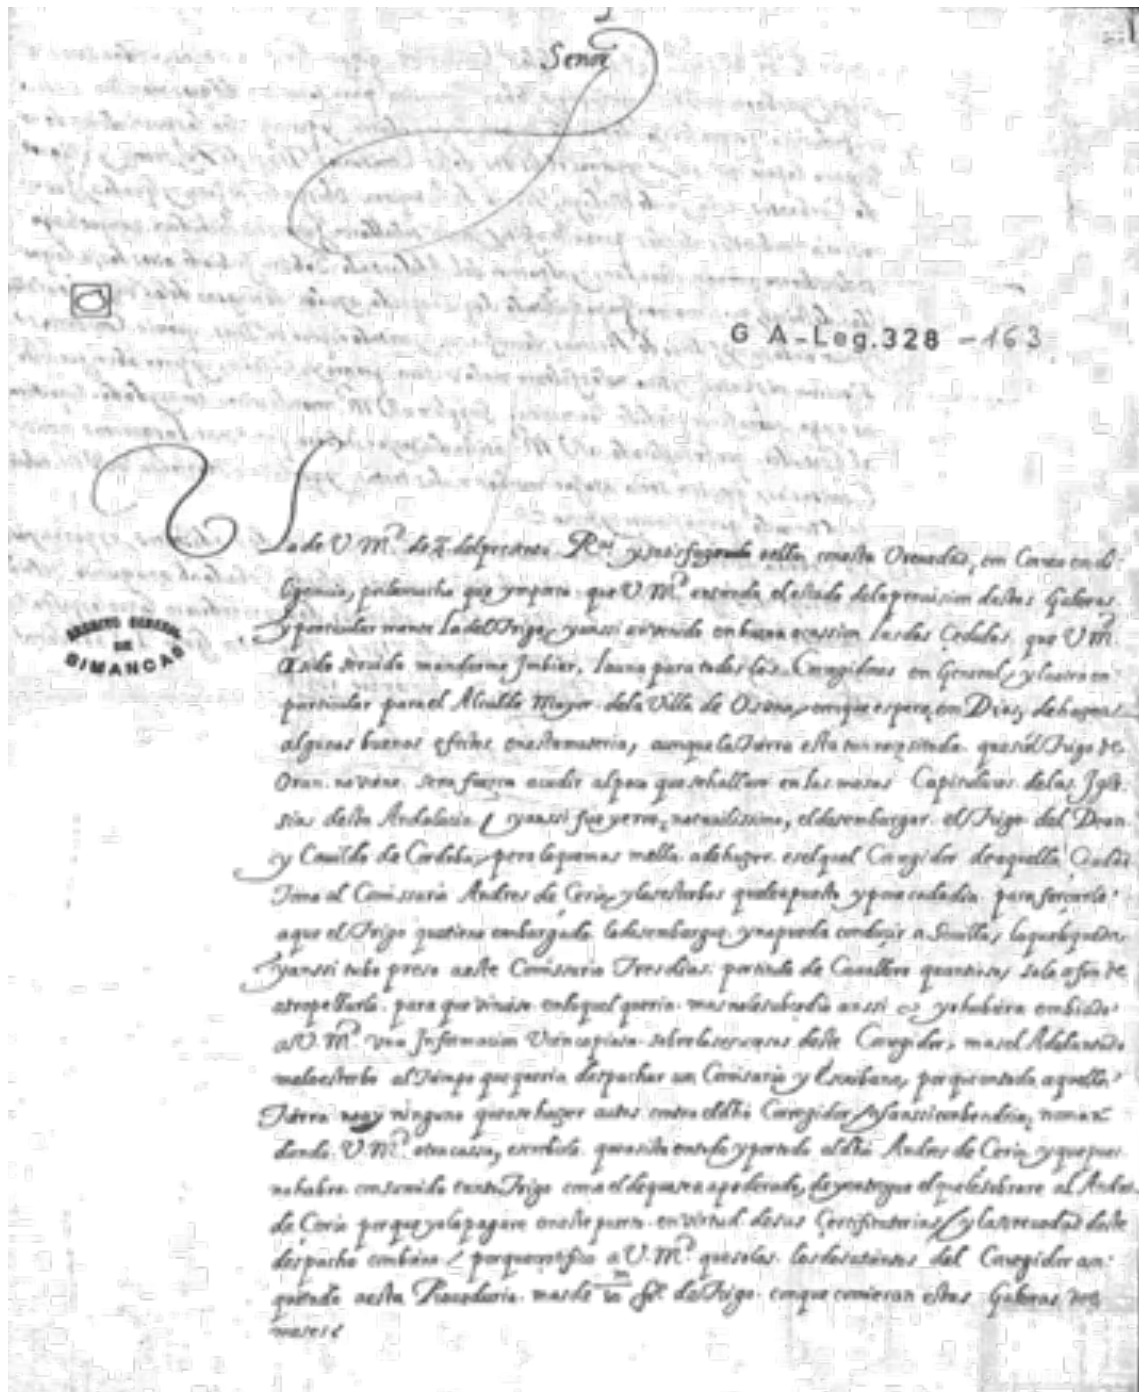 Señor
G A-Leg.328 -163
ARCHIVO GENERAL
DE
SIMANCAS
La de V. M.d de del presente Reciví y satisfaciendo a ella, con esta Ordenados, con Correo en di-
ligencia, por lo mucho que ymporta que V. M.d entienda el estado de la provision destas Galeras
y particularmente la del Trigo, y anssi an venido en buena ocassion las dos Cedulas que V M.
a sido servido mandarme Imbiar, la una para todos los Corregidores en General, y la otra en
particular para el Alcalde Mayor de la Villa de Osuna, con que espero, en Dios, de hazer
algunos buenos efectos en esta materia, aunque la Tierra esta tan que si el Trigo de
Oran no viene sera fuerza acudir al pan que se hallare en las mesas Capitulares de las Ygle-
sias desta Andaluzia / y anssi fue yerro, notabilissimo, el desembargar el Trigo del Dean
y Cavildo de Cordoba, pero lo que mas mella a de hazer es el que el Corregidor de aquella Ciudad
Tomo al Comissario Andres de Cerio, y los estorbos que le a puesto y pone cada dia para forçarle
a que el Trigo que tiene embargado lo desembargue, y no pueda conduzir a Sevilla, lo que
y anssi tubo preso a este Comissario Tres dias por titulo de Cavallero quantioso, solo a fin de
atropellarlo para que viniese en lo que el queria mas no le subcedio anssi y yo hubiera embiado
a V. M.d una Informacion bien copiosa sobre los excesos deste Corregidor, mas el Adelantado
me lo estorbo al Tiempo que queria despachar un Comisario y Escribano, porque en toda aquella
Tierra no ay ninguno que ose hazer autos contra el dho Corregidor y anssi conbendria, no man-
dando V. M.d otra cossa, escrebirle que asista en todo y por todo al dho Andres de Cerio, y que pues
no habra consumido tanto Trigo como el de que se a apoderado, de y entregue el que le sobrare al Andres
de Cerio porque yo lo pagare en este puerto en virtud de sus Certificatorias / y la brevedad deste
despacho conbiene / porque certifico a V. M.d que solas los desatinos del Corregidor an
quitado a esta Proveeduria mas de de Trigo con que comieran estas Galeras tres
meses